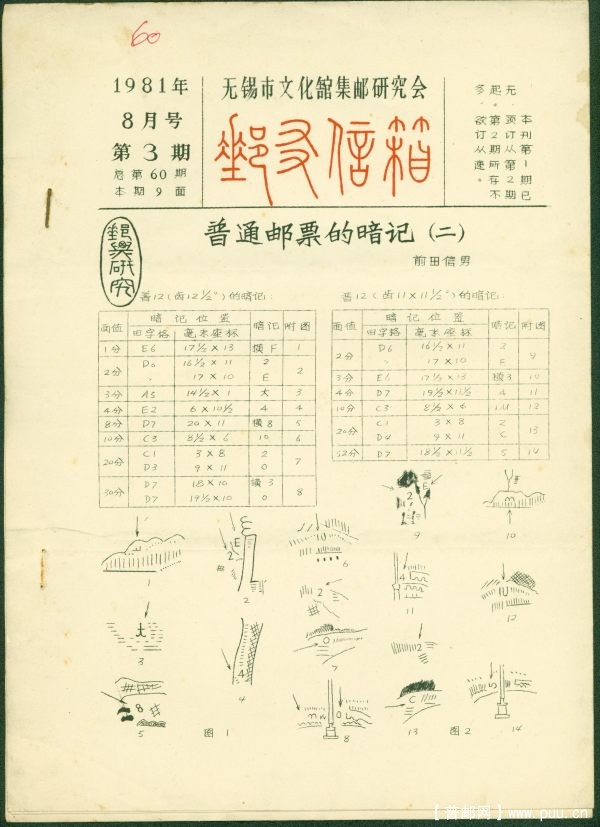 60
1981年
8月号
第3期
总第60期
本期9面
无锡市文化館集邮研究会
郵友信箱
本刊第1期已
无
邮兴研究
普通邮票的暗记(二)
前田信男
普12(齿12½°)的暗记:
面值 暗记位置 暗记 附图
田字格 毫米坐标
1分 E6 17½×13 横F 1
2分 D6 16½×11 2 2
〃 17×10 E
3分 A5 14½×1 大 3
4分 E2 6×10½ 4 4
8分 D7 20×11 横8 5
10分 C3 8½×6 10 6
20分 C1 3×8 2 7
D3 9×11 0
30分 D7 18×10 横3 8
D7 19½×10 0
普12(齿11×11½°)的暗记:
面值 暗记位置 暗记 附图
田字格 毫米坐标
2分 D6 16½×11 2 9
〃 17×10 E
3分 E6 17½×13 横3 10
4分 D7 19½×11½ 4 11
10分 C3 8½×6 12
20分 C1 3×8 2 13
D4 9×11 C
52分 D7 18½×11½ 5 14
1
2
3
4
5
图1
6
7
8
9
10
11
12
13
图2
14
【普邮网】www.puu.cn